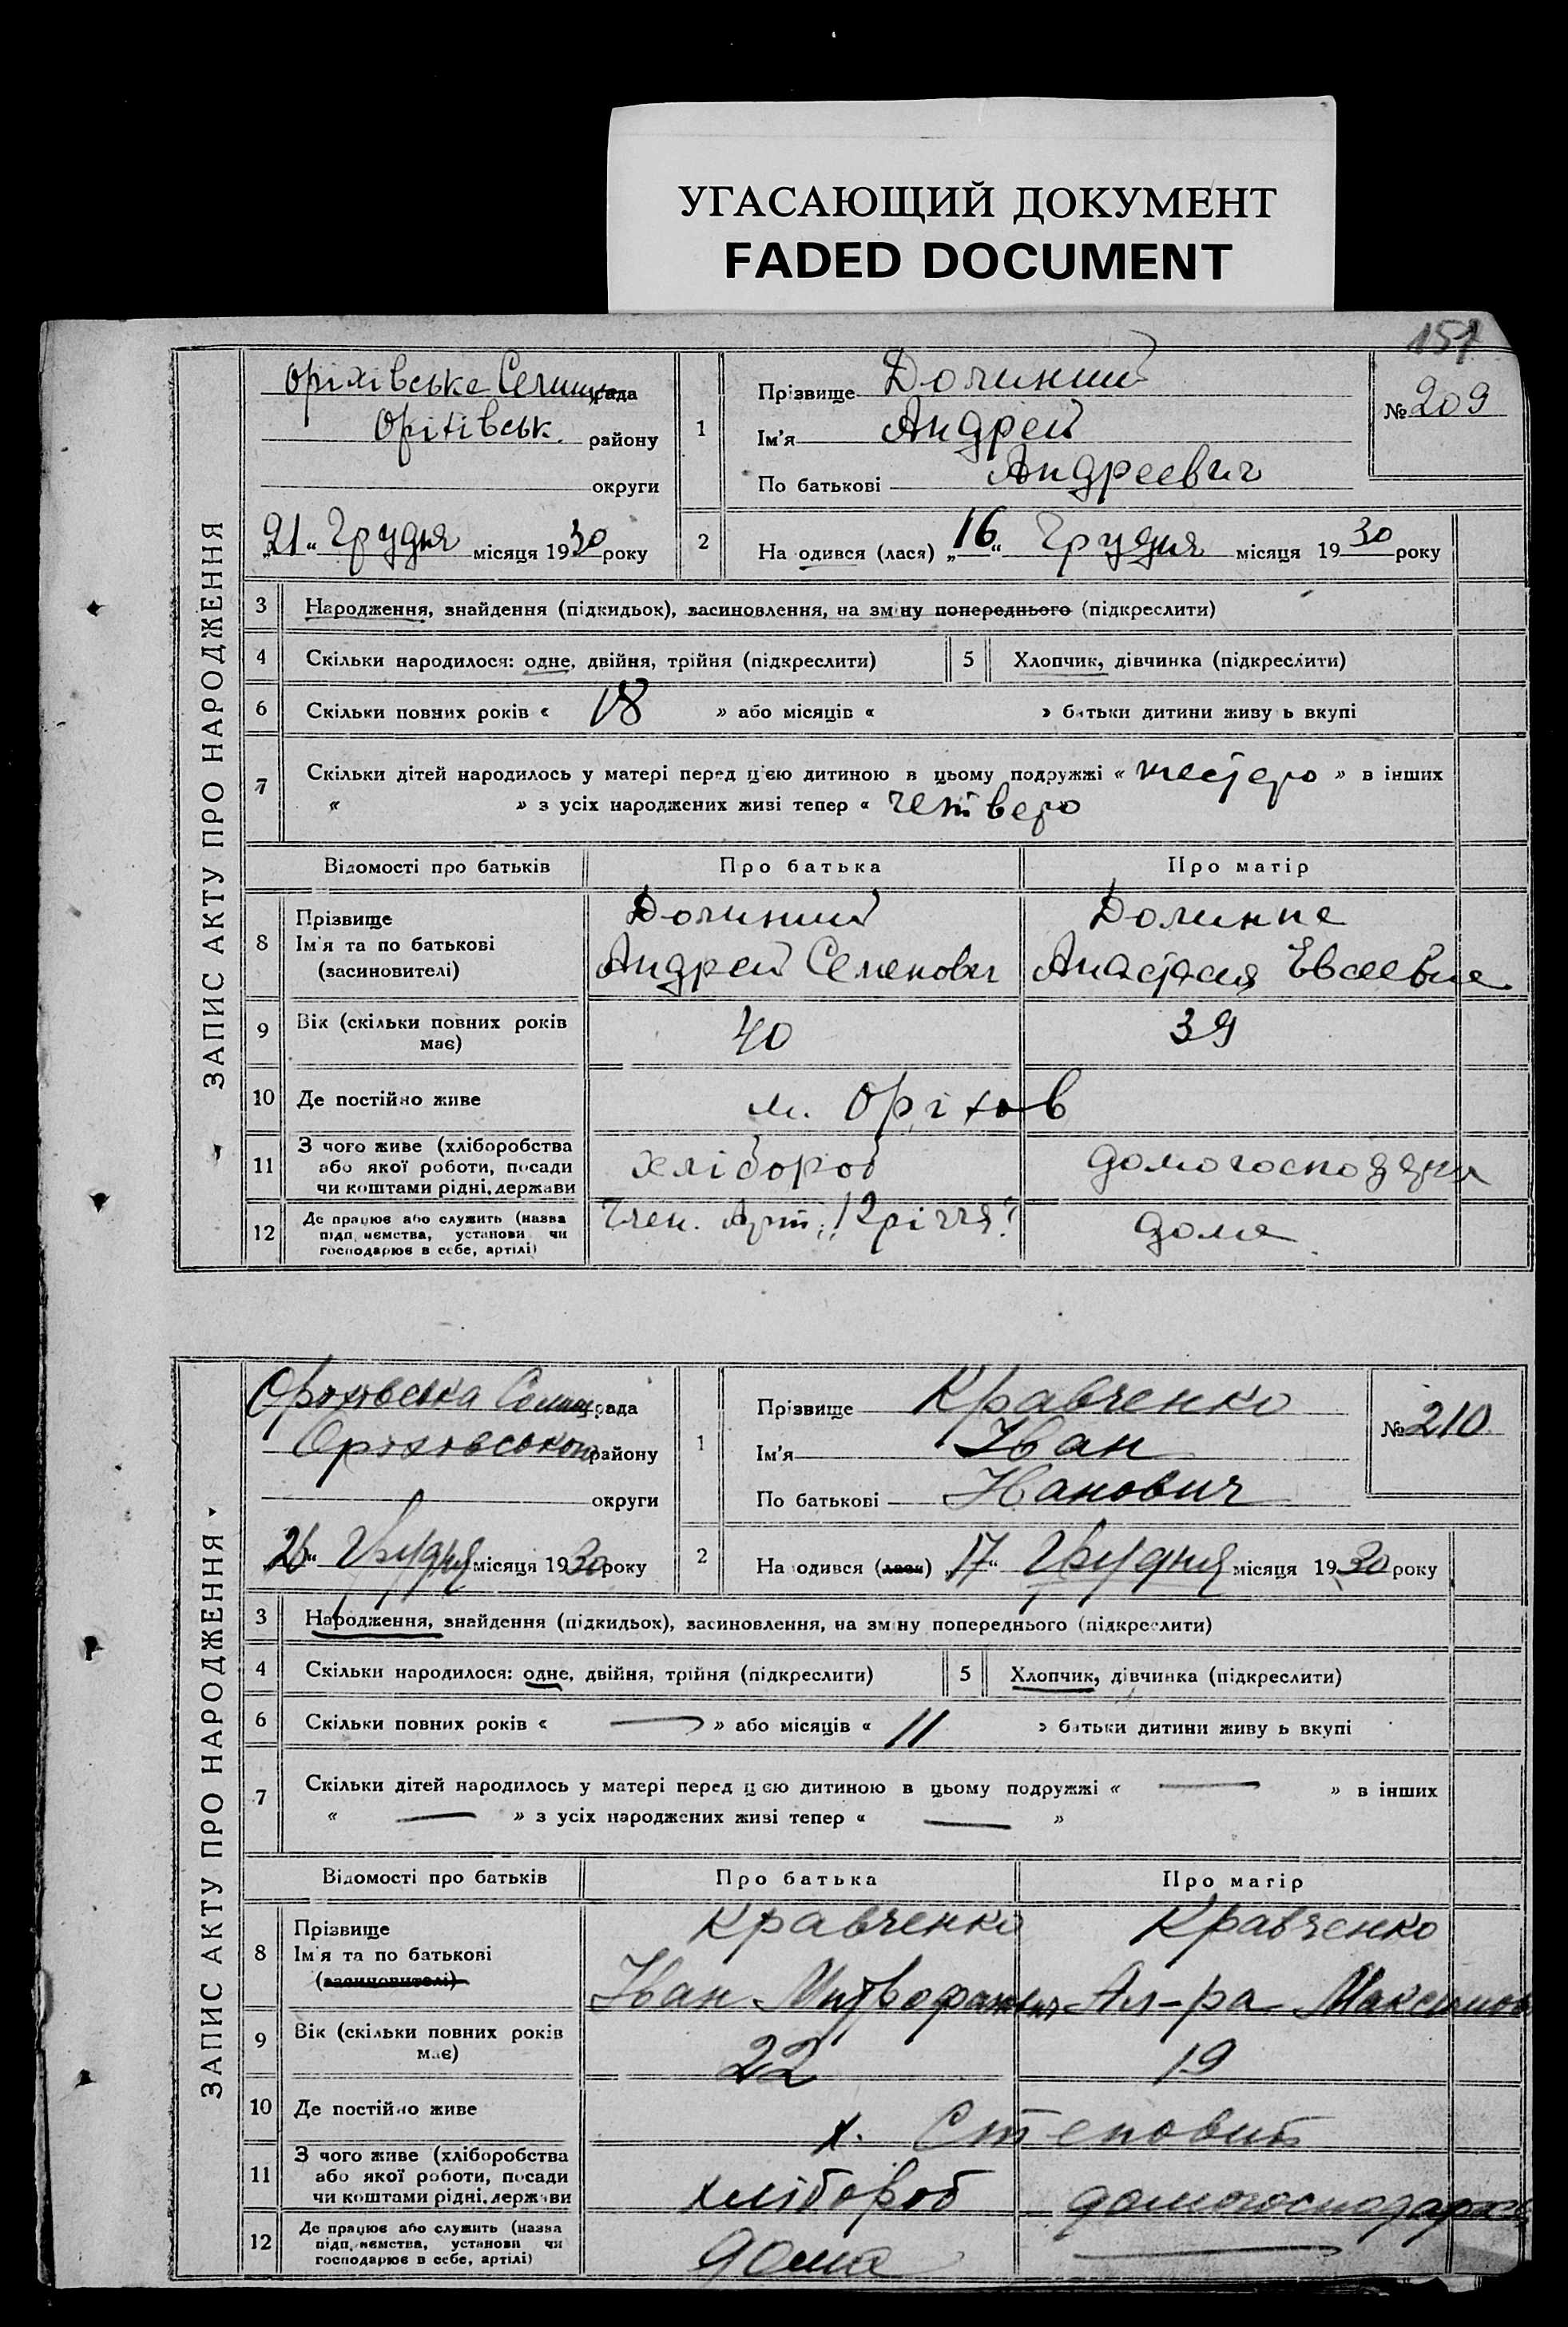 УГАСАЮЩИЙ ДОКУМЕНТ
FADED DOCUMENT
151
ЗАПИС АКТУ ПРО НАРОДЖЕННЯ
Оріхівська Селищрада
Оріхівськ. району
округи
„21“ Грудня місяця 1930 року
1
Прізвище Долинний
Ім'я Андрей
По батькові Андреевич
№ 209
2
На одився (лася) „16“ Грудня місяця 1930 року
3 Народження, знайдення (підкидьок), засиновлення, на зміну попереднього (підкреслити)
4 Скільки народилося: одне, двійня, трійня (підкреслити) 5 Хлопчик, дівчинка (підкреслити)
6 Скільки повних років « 18 » або місяців « » батьки дитини живу ь вкупі
7 Скільки дітей народилось у матері перед цією дитиною в цьому подружжі « шестеро » в інших
« » з усіх народжених живі тепер « четверо
Відомості про батьків Про батька Про матір
8 Прізвище Долинний Долинна
Ім'я та по батькові Андрей Семенович Анастасия Евсеевна
(засиновителі)
9 Вік (скільки повних років має) 40 39
10 Де постійно живе м. Оріхов
11 З чого живе (хліборобства
або якої роботи, посади
чи коштами рідні, держави хлібороб домогосподяня
12 Де працює або служить (назва
підп иємства, установи чи
господарює в себе, артілі) Член. Арт. „12 річчя" дома
ЗАПИС АКТУ ПРО НАРОДЖЕННЯ
Оріховська Селищрада
Оріховського району
округи
26“ Грудня місяця 1930 року
1
Прізвище Кравченко
Ім'я Іван
По батькові Іванович
№ 210
2
На одився (лася) 17“ Грудня місяця 1930 року
3 Народження, знайдення (підкидьок), засиновлення, на зміну попереднього (підкреслити)
4 Скільки народилося: одне, двійня, трійня (підкреслити) 5 Хлопчик, дівчинка (підкреслити)
6 Скільки повних років « — » або місяців « 11 » батьки дитини живу ь вкупі
7 Скільки дітей народилось у матері перед цією дитиною в цьому подружжі « — » в інших
« — » з усіх народжених живі тепер « — »
Відомості про батьків Про батька Про матір
8 Прізвище Кравченко Кравченко
Ім'я та по батькові Іван Митрофанович Ал-ра Максимов
(засиновителі)
9 Вік (скільки повних років має) 22 19
10 Де постійно живе х. Степовий
11 З чого живе (хліборобства
або якої роботи, посади
чи коштами рідні, держави хлібороб домогосподарка
12 Де працює або служить (назва
підп иємства, установи чи
господарює в себе, артілі) дома —